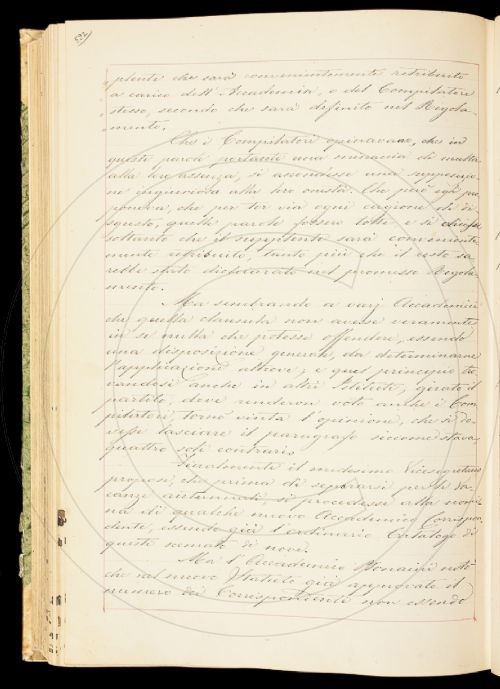 plente che sarà convenientemente retribuito
a carico dell'Accademia, e del Compilatore
stesso, secondo che sarà definito nel Regola-
mento.
Che i Compilatori opinavano, che in
queste parole portassi una minaccia di multa
alla loro assenza, si ascondesse una supposizio-
ne ingiuriosa alla loro onestà. Che però egli pro-
poneva, che per tor via ogni cagione di di-
sgusto, queste parole fossero tolte e si dicesse
soltanto che il supplente sarà conveniente-
mente retribuito, tanto più che il resto sa-
rebbe stato dichiarato nel promesso Regola-
mento.
Ma sembrando a varj Accademici
che questa clausula non avesse veramente
in sé nulla che potesse offendere, essendo
una disposizione generale, da determinarne
l'applicazione altrove, e quel principio tro-
vandosi anche in altri Istituti, girato il
partito, dove renderon voto anche i Com-
pilatori, tornò vinta l'opinione, che si do-
vesse lasciare il paragrafo siccome stava
quattro soli contrari.
Finalmente il medesimo Vicesegretario
propose, che prima di separarsi per le va-
canze autunnali si procedesse alla nomi-
na di qualche nuovo Accademico Corrispon-
dente, essendo già l'ordinario Catalogo di
questi scemato di nove.
Ma l'Accademico Bonaini notò
che nel nuovo Statuto già approvato il
numero dei Corrispondenti non essendo